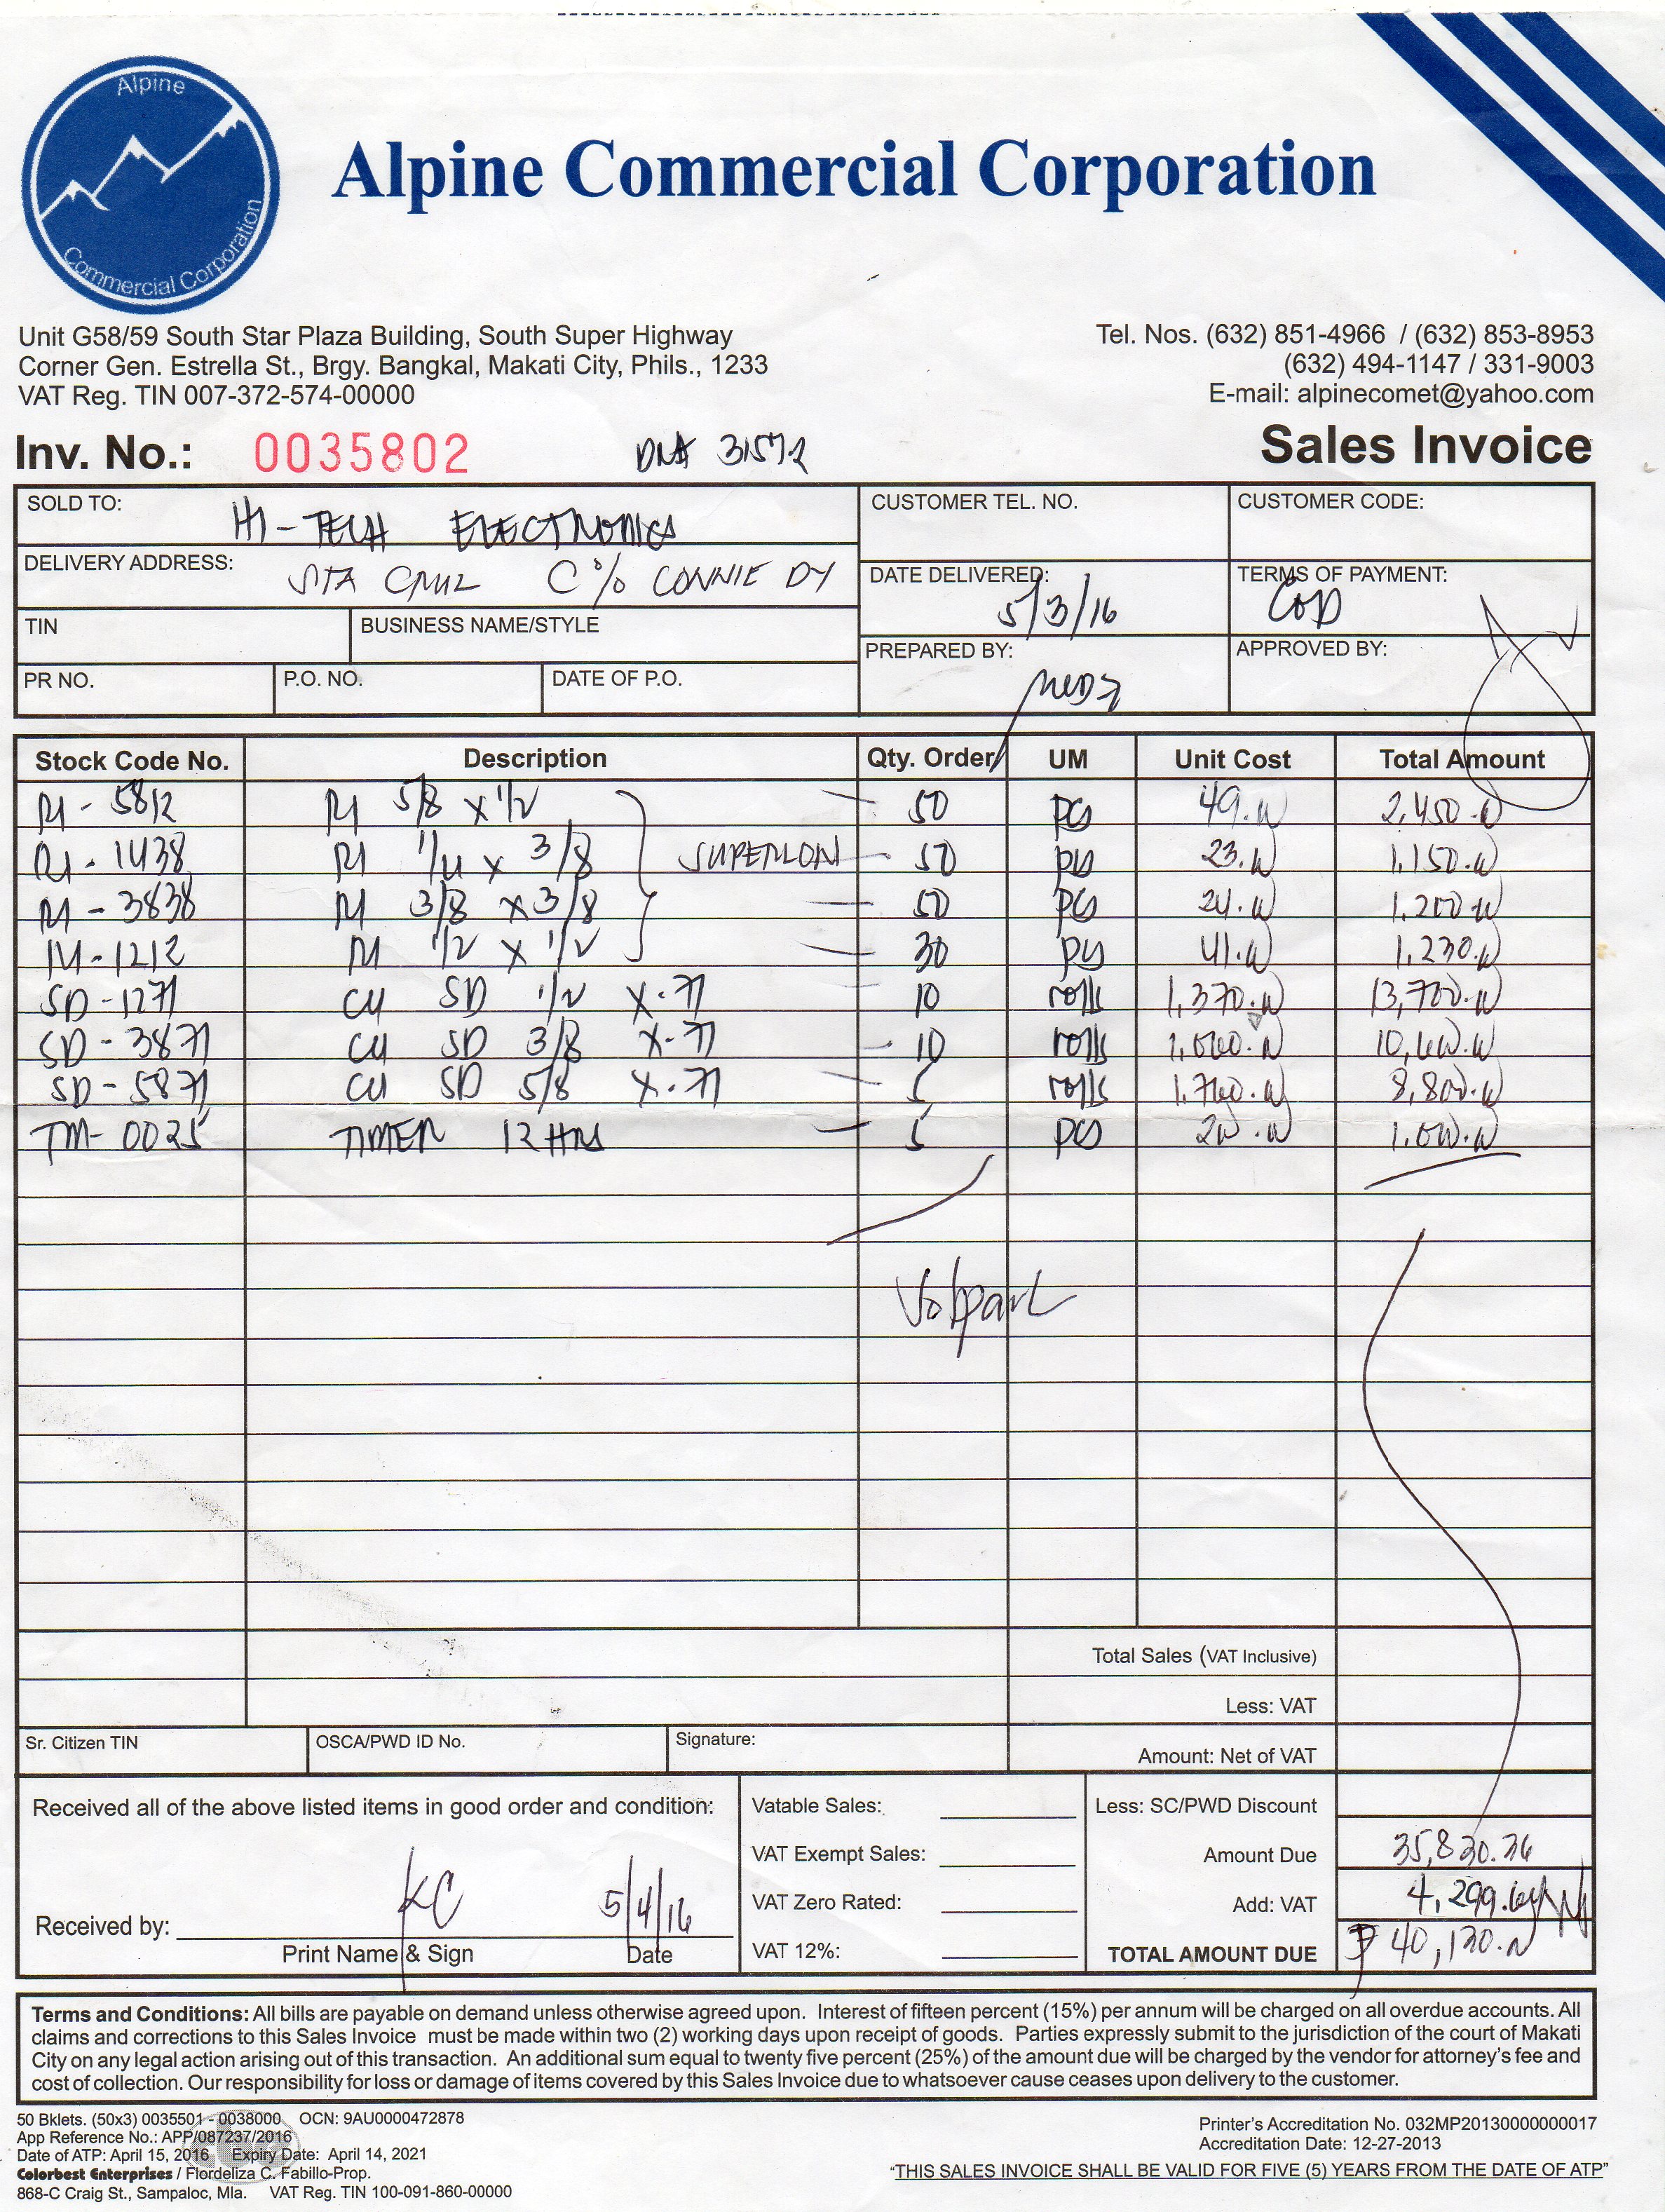 Alpine
Commercial Corporation
Alpine Commercial Corporation
Unit G58/59 South Star Plaza Building, South Super Highway
Corner Gen. Estrella St., Brgy. Bangkal, Makati City, Phils., 1233
VAT Reg. TIN 007-372-574-00000
Tel. Nos. (632) 851-4966 / (632) 853-8953
(632) 494-1147 / 331-9003
E-mail: alpinecomet@yahoo.com
Inv. No.: 0035802 31572 Sales Invoice
SOLD TO: HI-TECH ELECTRONICS CUSTOMER TEL. NO. CUSTOMER CODE:
DELIVERY ADDRESS: STA CRUZ C% CONNIE DY DATE DELIVERED: 5/3/16 TERMS OF PAYMENT: COD
TIN BUSINESS NAME/STYLE PREPARED BY: APPROVED BY:
PR NO. P.O. NO. DATE OF P.O.
Stock Code No. Description Qty. Order UM Unit Cost Total Amount
RI - 5812 RI 5/8 x 1/2 50 pcs 49.00 2,450.00
RI - 1438 RI 1/4 x 3/8 SUPERLON 50 pcs 23.00 1,150.00
RI - 3838 RI 3/8 x 3/8 50 pcs 24.00 1,200.00
RI - 1212 RI 1/2 x 1/2 30 pcs 41.00 1,230.00
SD - 1271 CU SD 1/2 X .71 10 rolls 1,370.00 13,700.00
SD - 3871 CU SD 3/8 X .71 10 rolls 1,060.00 10,600.00
SD - 5871 CU SD 5/8 X .71 5 rolls 1,760.00 8,800.00
TM - 0025 TIMER 12 HRS 5 pcs 200.00 1,000.00
Total Sales (VAT Inclusive)
Less: VAT
Sr. Citizen TIN OSCA/PWD ID No. Signature: Amount: Net of VAT
Received all of the above listed items in good order and condition:
Received by: KC 5/4/16
Print Name & Sign Date
Vatable Sales:
VAT Exempt Sales:
VAT Zero Rated:
VAT 12%:
Less: SC/PWD Discount
Amount Due 35,830.36
Add: VAT 4,299.64
TOTAL AMOUNT DUE ₱ 40,130.00
Terms and Conditions: All bills are payable on demand unless otherwise agreed upon. Interest of fifteen percent (15%) per annum will be charged on all overdue accounts. All
claims and corrections to this Sales Invoice must be made within two (2) working days upon receipt of goods. Parties expressly submit to the jurisdiction of the court of Makati
City on any legal action arising out of this transaction. An additional sum equal to twenty five percent (25%) of the amount due will be charged by the vendor for attorney's fee and
cost of collection. Our responsibility for loss or damage of items covered by this Sales Invoice due to whatsoever cause ceases upon delivery to the customer.
50 Bklets. (50x3) 0035501 - 0038000 OCN: 9AU0000472878
App Reference No.: APP/087237/2016
Date of ATP: April 15, 2016 Expiry Date: April 14, 2021
Colorbest Enterprises / Flordeliza C. Fabillo-Prop.
868-C Craig St., Sampaloc, Mla. VAT Reg. TIN 100-091-860-00000
Printer's Accreditation No. 032MP20130000000017
Accreditation Date: 12-27-2013
"THIS SALES INVOICE SHALL BE VALID FOR FIVE (5) YEARS FROM THE DATE OF ATP"